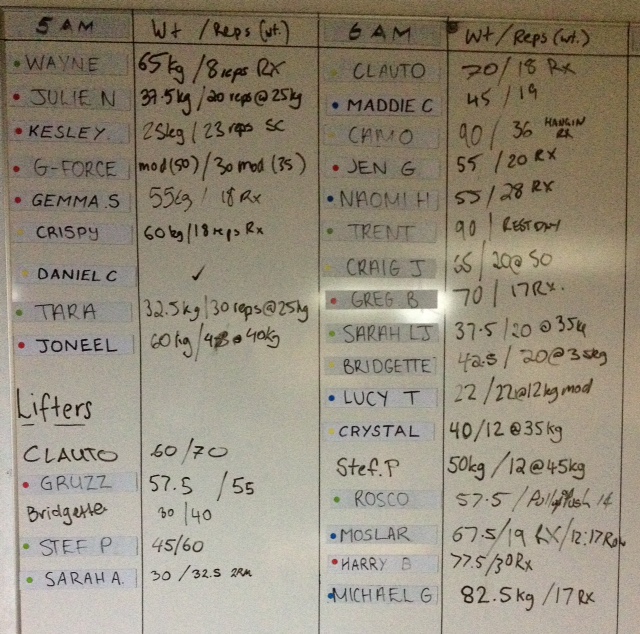 5 AM Wt / Reps (wt.)
WAYNE 65kg / 8 reps RX
JULIE N 37.5kg / 20 reps @ 25kg
KESLEY. 25kg / 23 reps SC
G-FORCE mod (50) / 30 mod (35)
GEMMA.S 55kg / 18 Rx
CRISPY 60kg / 18 reps Rx
DANIEL C ✓
TARA 32.5kg / 30 reps @ 25kg
JONEEL 60kg / @ 40kg
Lifters
CLAUTO 60 / 70
GRUZZ 57.5 / 55
Bridgette 30 / 40
STEF P. 45/60
SARAH A. 30 / 32.5 2RM
6 AM Wt / Reps (wt.)
CLAUTO 70 / 18 Rx
MADDIE C 45 / 19
CAMO 90 / 36 HANGIN RX
JEN G 55 / 20 RX
NAOMI H 55 / 28 RX
TRENT 90 |
CRAIG J 65 / 20@ 50
GREG B 70 | 17 Rx.
SARAH LJ 37.5 / 20 @ 35kg
BRIDGETTE 42.5 / 20@35kg
LUCY T 22 / 22@12kg mod
CRYSTAL 40/12 @35kg
Stef.P 50kg / 12@45kg
ROSCO 57.5 /
MOSLAR 67.5/19 RX/12:17 Row
HARRY B 77.5/30Rx
MICHAEL G 82.5kg / 17 Rx